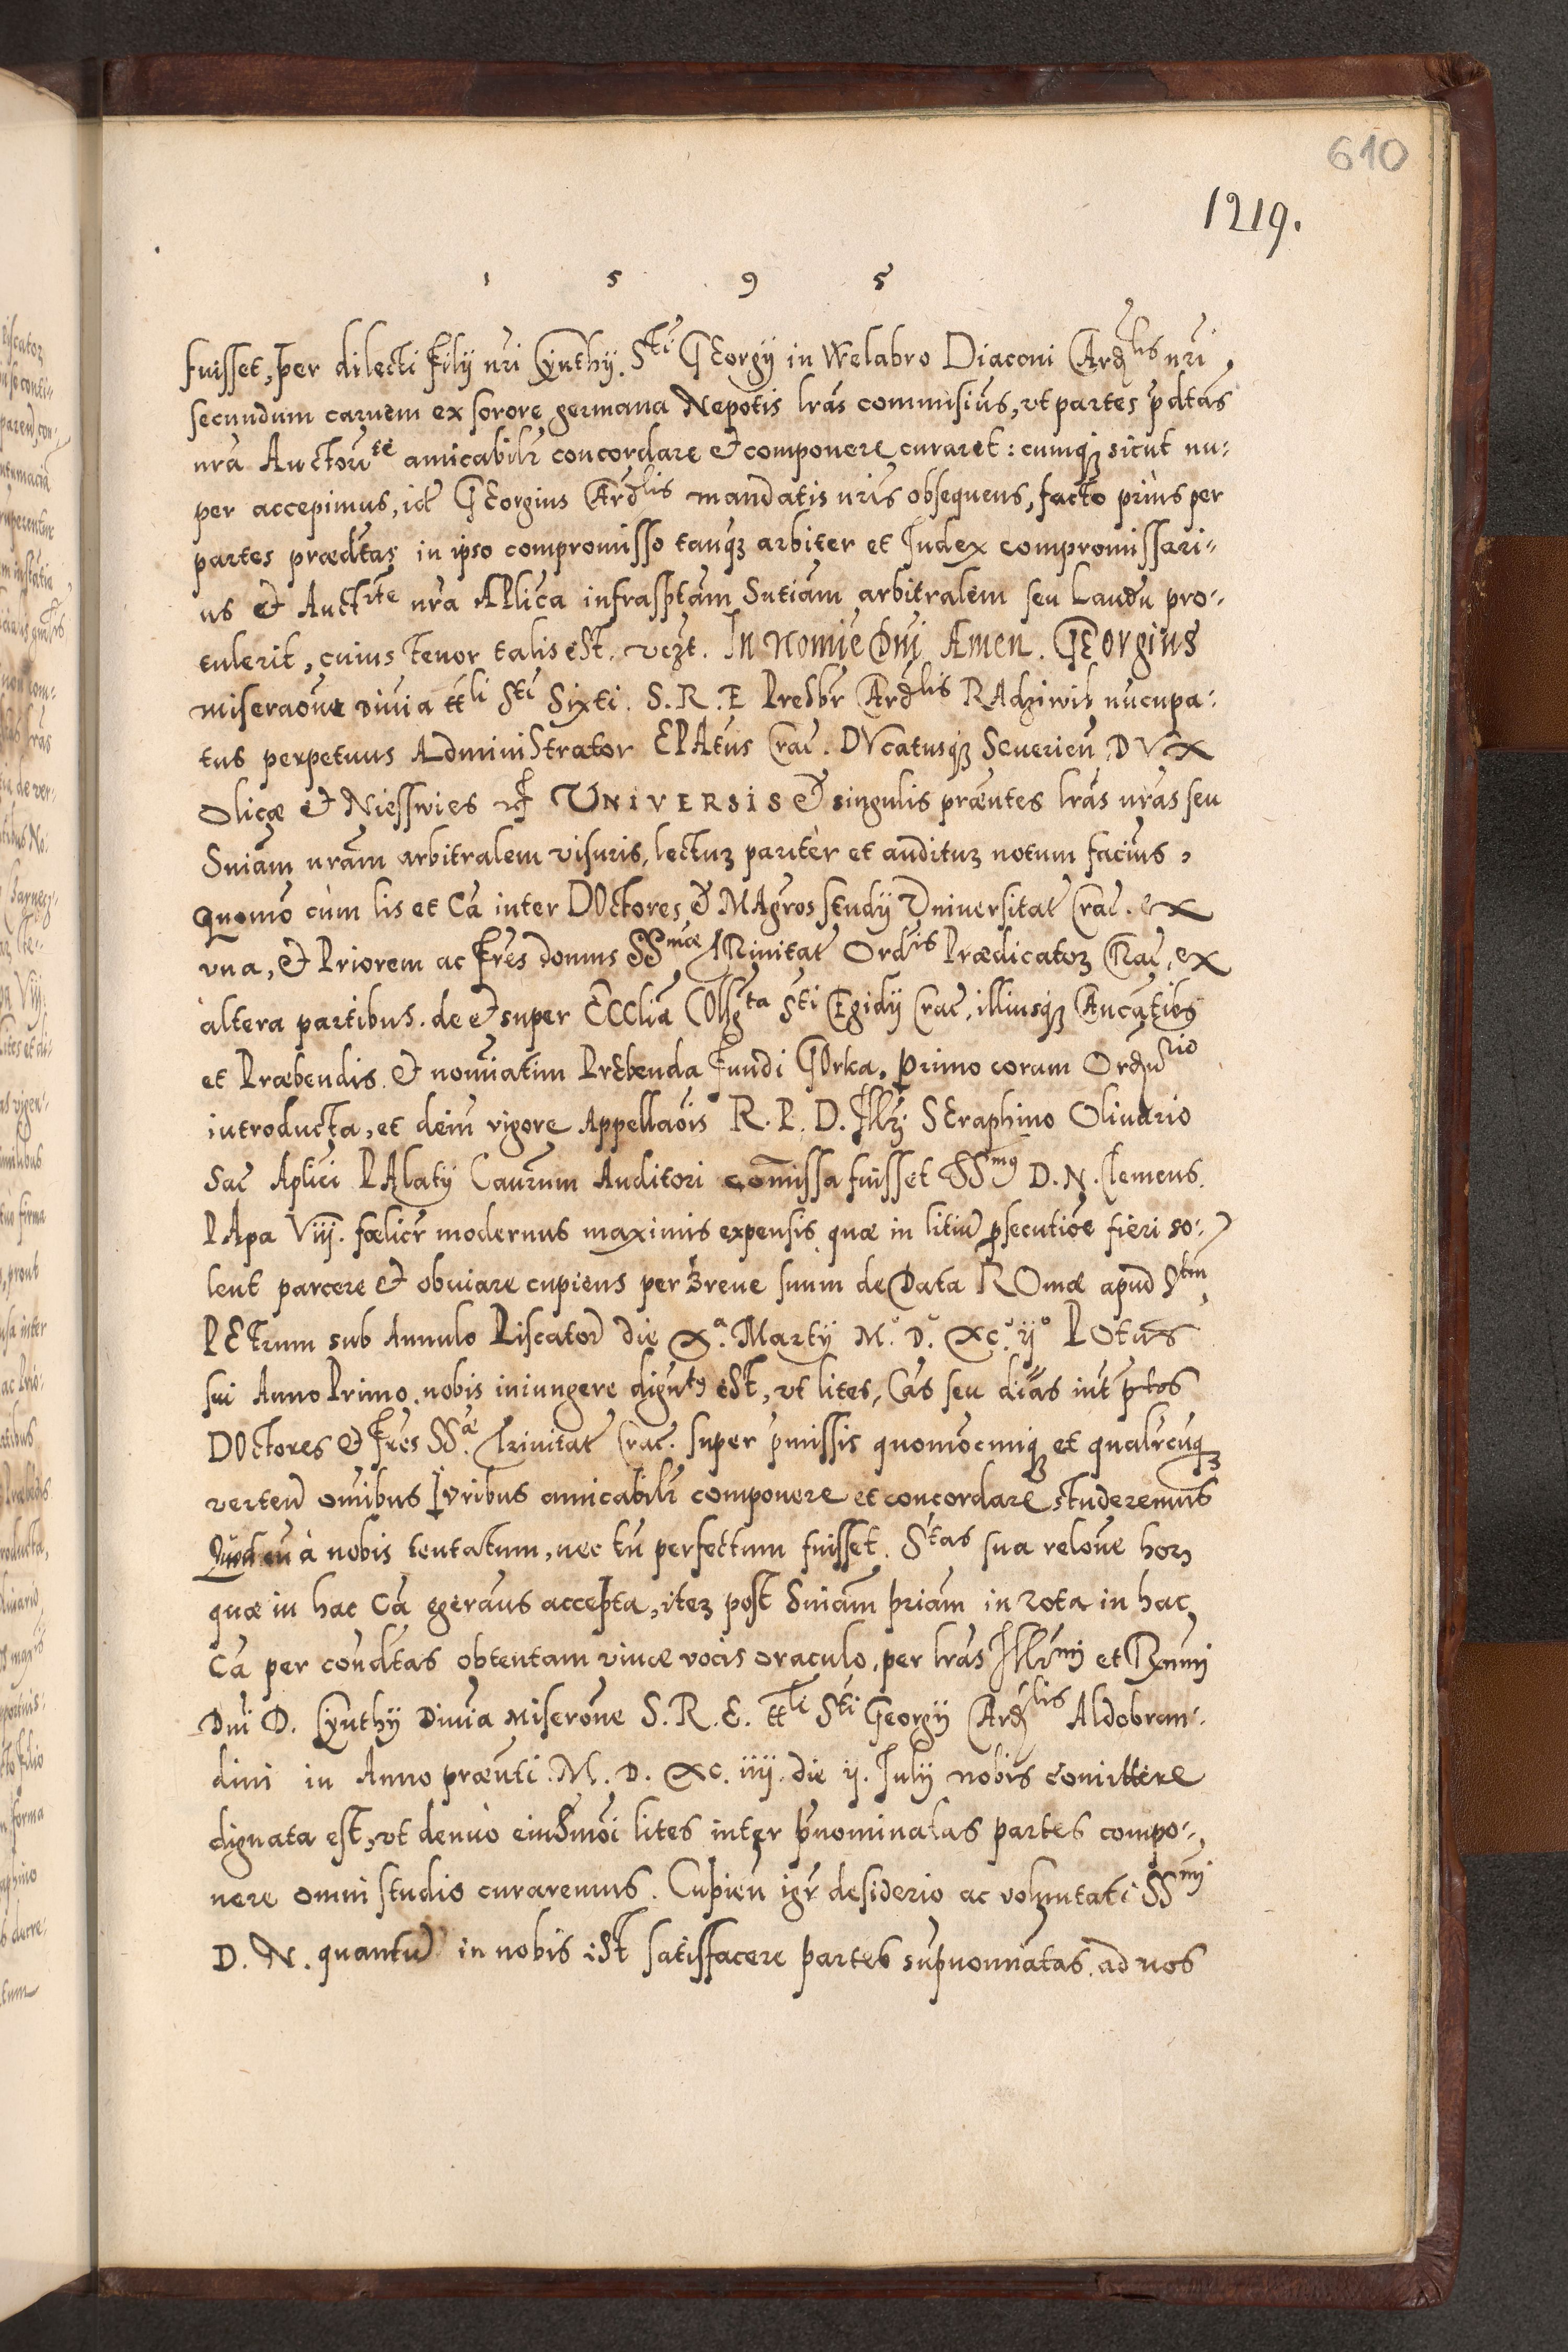 610
1219.
1 5 9 5
fuisset, per dilecti Filij nri Cynthij. Sti GEorgij in Welabro Diaconi CArdlis nri,
secundum carnem ex sorore germana Nepotis lras commisimus, vt partes pdtas
nra Auctorite amicabilr concordare et componere curaret: cumq sicut nu:
per accepimus, id GEorgius CArdlis mandatis nris obsequens, facto prius per
partes prædtas in ipso compromisso tanq arbiter et Judex compromissari-
us et Auctrite nra APlica infrasptam Sntiam arbitralem seu Laudu pro-
tulerit, cuius tenor talis est. vczt. In Nomie Dni Amen. GEorgius
miseraone diuia ttli Sti Sixti. S. R. E Presbr CArdlis RAdziwil nucupa:
tus perpetuus AdminiStrator EPAtus Crac. DVcatusq Seuerien, DVX
Olicæ et Niesswies etc UNIVERSIS et singulis præntes lras nras seu
Sniam nram arbitralem visuris, lecturz pariter et auditurz notum facimus,
Quomo cum lis et Ca inter DOctores et MAgros studij Vniversitat Crac. ex
vna, et Priorem ac Fres domus SSmæ TRinitat Ordis Prædicatorz CRac, ex
altera partibus. de et super ECClia COllgta Sti Egidij Crac, illiusq CAncatibs
et Præbendis et nominatim PrEbenda Fundi GOrka, Primo coram Ordrio
introducta, et dein vigore Appellaois R. P. D. Illrz SEraphino Oliuario
Sac Aplici PAlatij Caurum Auditori comissa fuisset SSmus D. N. Clemens.
PApa Viij. fœlicr modernus maximis expensis quæ in litiu psecutioe fieri so:
lent parcere et obuiare cupiens per Breue suum de Data ROmæ apud Stm
PEtrum sub Annulo Piscator die Xa. Martij Mo. Do. XCo. ijo POtus
sui Anno Primo. nobis iniungere digntus eSt, vt lites, Cas seu dias int ptos
DOctores et Fres SSæ Trinitat Crac. super pmissis quomocunq et qualrcuq
vertend omibus Iuribus amicabilr componere et concordare studeremus
Quod cu à nobis tentatum, nec tn perfectum fuisset. Stas sua relone horz
quæ in hac Ca egeramus accepta, iterz post Sniam priam in rota in hac
Ca per condtas obtentam viuæ vocis oraculo, per lras Illrmi et Rnmi
Dni D. Cynthij Diuia Miserone S. R. E. ttli Sti Georgij CArdlis Aldobran:
dini in Anno prænti. M. D. XC. iiij. die ij. Julij nobis comittere
dignata est, vt denuo eiusdmoi lites inter pnominatas partes compo-
nere omni studio curaremus. Cupien igr desiderio ac voluntati SSmi
D. N. quantu in nobis eSt satisfacere partes supnomiatas. ad nos